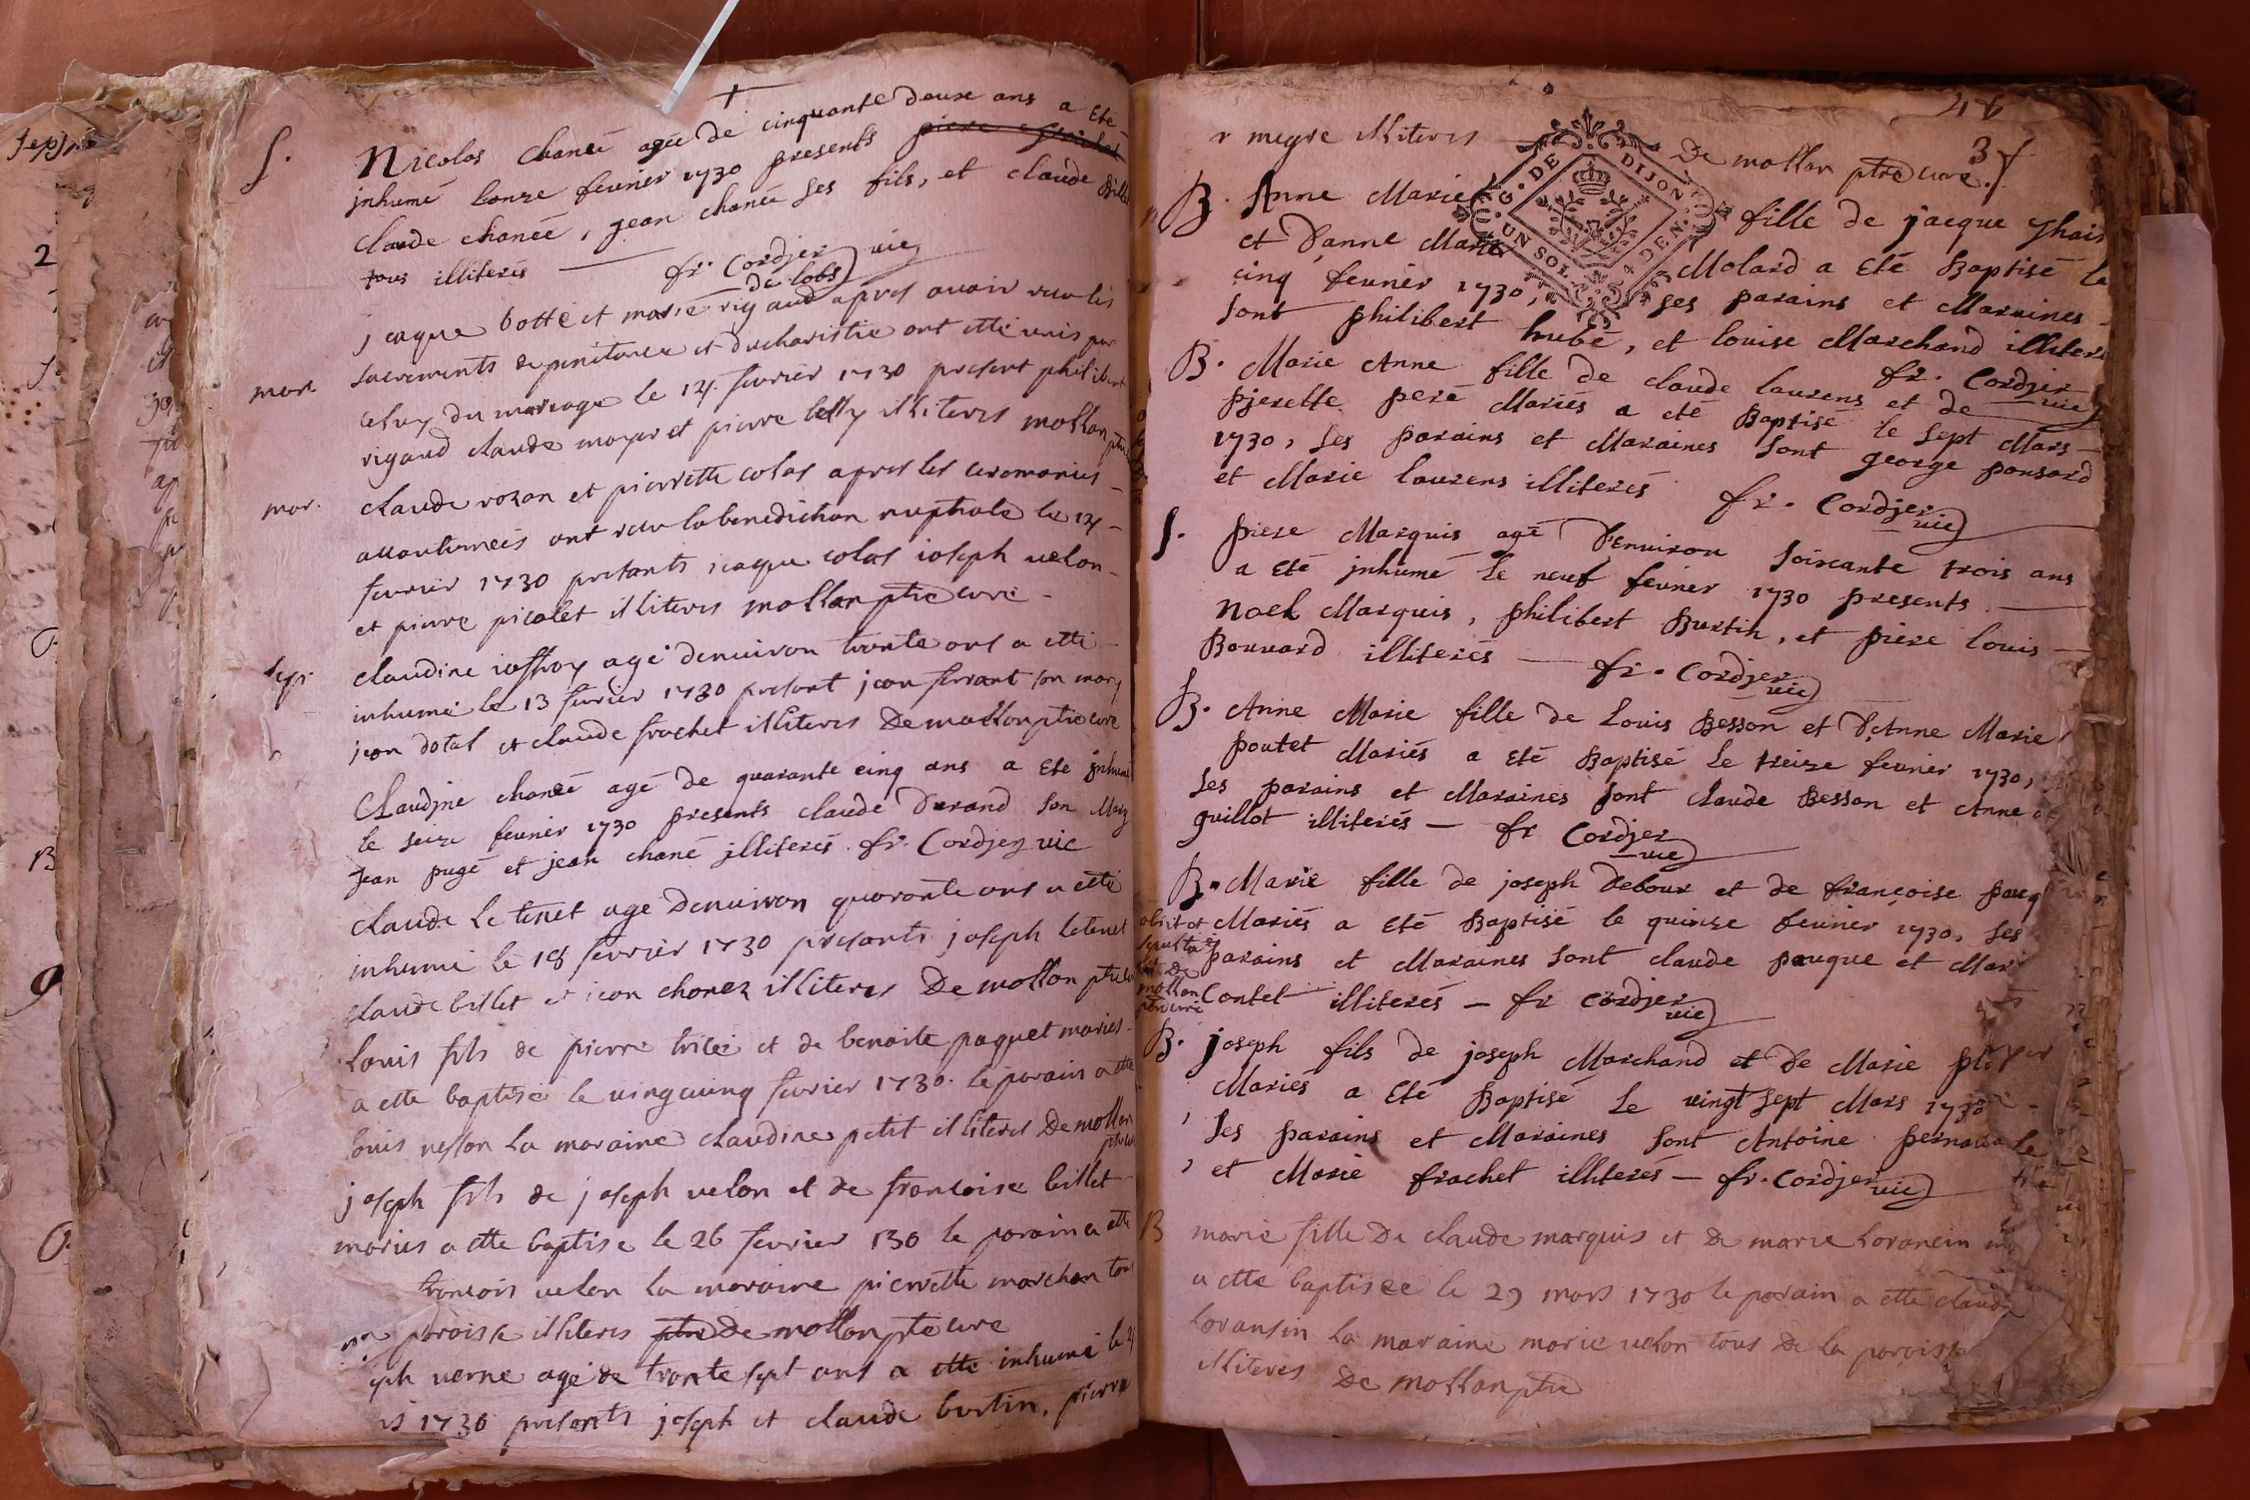 S. Nicolas chaneé ageé de cinquante deux ans a eté
jnhumé lonze feurier 1730 presents piere frachet
claude chaneé, jean chaneé ses fils, et claude Bille
tous illiterés fr. Cordjer vic
de lobs
jcaque botte et marie rigaud apres avoir receu les
sacrements de penitence et deucharistie ont etté unis par
mar. celuy du mariage le 14 fevrier 1730 present philibert
rigaud claude moyer et pierre letty illiteres mollan ptre
mar. claude rozan et pierrette colas apres les ceremonies
accoutumeés ont receu la benediction nuptiale le 14
fevrier 1730 presents jcaque colas ioseph velon
et pierre picolet illiteres mollan ptre curé
sep. claudine ioffroy agé denviron trante ans a etté
inhumé le 13 fevrier 1730 present jean ferrant son mary
jean dotal et claude frachet illiteres De mollon ptre curé
Claudine chaneé agé de quarante cinq ans a eté jnhumé
le seize feurier 1730 presents claude Durand son Mary
jean pugé et jean chané jlliterés. fr. Cordjer vic
claude Le tenet age Denviron quarante ans a etté
inhumé le 18 fevrier 1730 presents joseph letenet
claude billet et jean chonez illiteres De mollon ptre
Louis fils de pierre trilé et de benoite paquet mariés
a ette baptisé le vingcinq fevrier 1730. le parain a etté
louis vellon La maraine claudine petit illiteres De mollon
joseph fils de joseph velon et de francoise billet
mories a ette baptise le 26 fevrier 130 le parain a etté
francois velon la maraine pierrette marchan tous
paroisse illiteres ptre de mollon ptre cure
eph verne agé de trante sept ans a etté inhumé le
rs 1730 presents joseph et claude burtin, pierre
46
3
r megre illiteres De mollon ptre curé
G. DE DIJON
UN SOL
B. Anne Marie fille de jacque
et D'anne Marie Molard a eté Baptisé le
cinq feurier 1730, ses parains et Maraines
sont philibert hubé, et louise Marchand illiteré
fr. Cordjer vic
B. Marie Anne fille de claude laurens et de
pjerette peré Mariés a eté Baptisé le sept Mars
1730, ses parains et Maraines sont george ponsard
et Marie laurens illiterés fr. Cordjer vic
S. piere Marquis agé D'enuiron soixante trois ans
a eté jnhumé le neuf feurier 1730 presents
Noel Marquis, philibert Burtin, et piere louis
Bouvard illiterés fr. Cordjer vic
B. Anne Marie fille de Louis Besson et D'Anne Marie
poutet Mariés a eté Baptisé le treize feurier 1730,
ses parains et Maraines sont claude Besson et Anne
guillot illiterés fr Cordjer vic
B. Marie fille de joseph Deboux et de françoise pauq
Mariés a eté Baptisé le quinze feurier 1730, ses
parains et Maraines sont claude pauque et Mari
Contet illiterés fr Cordjer vic
obiit et
mollon
B. joseph fils de joseph Marchand et De Marie
Mariés a Eté Baptisé Le vingt sept Mars 1730
ses parains et Maraines sont Antoine
et Marie frachet illiterés fr. Cordjer vic
B marie fille De claude marquis et De marie Lorancin
a ette baptisee le 29 mars 1730 le parain a etté claude
Loransin La maraine marie velon tous De la paroisse
illiteres De mollon ptre